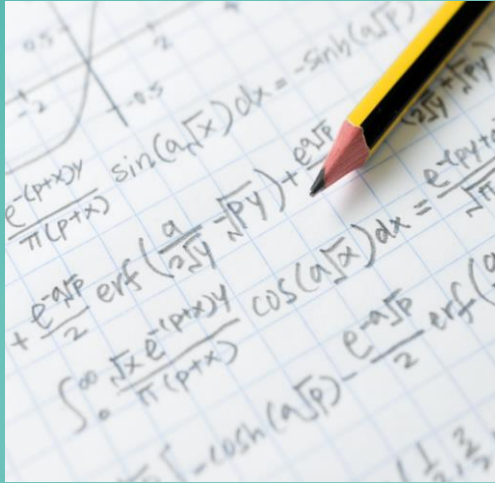 0.5
2
-2
-0.5
e^{-(p+x)y}/π(p+x) sin(a√x)dx = -sinh(a√p)
+ e^{-a√p}/2 erf(a/2√y - √py) + e^{a√p} (2√y + √py)
∫₀^∞ √x e^{-(p+x)y}/π(p+x) cos(a√x)dx = e^{-(py+
-cosh(a√p) - e^{-a√p}/2 erf(a
(1/2, 3/2,